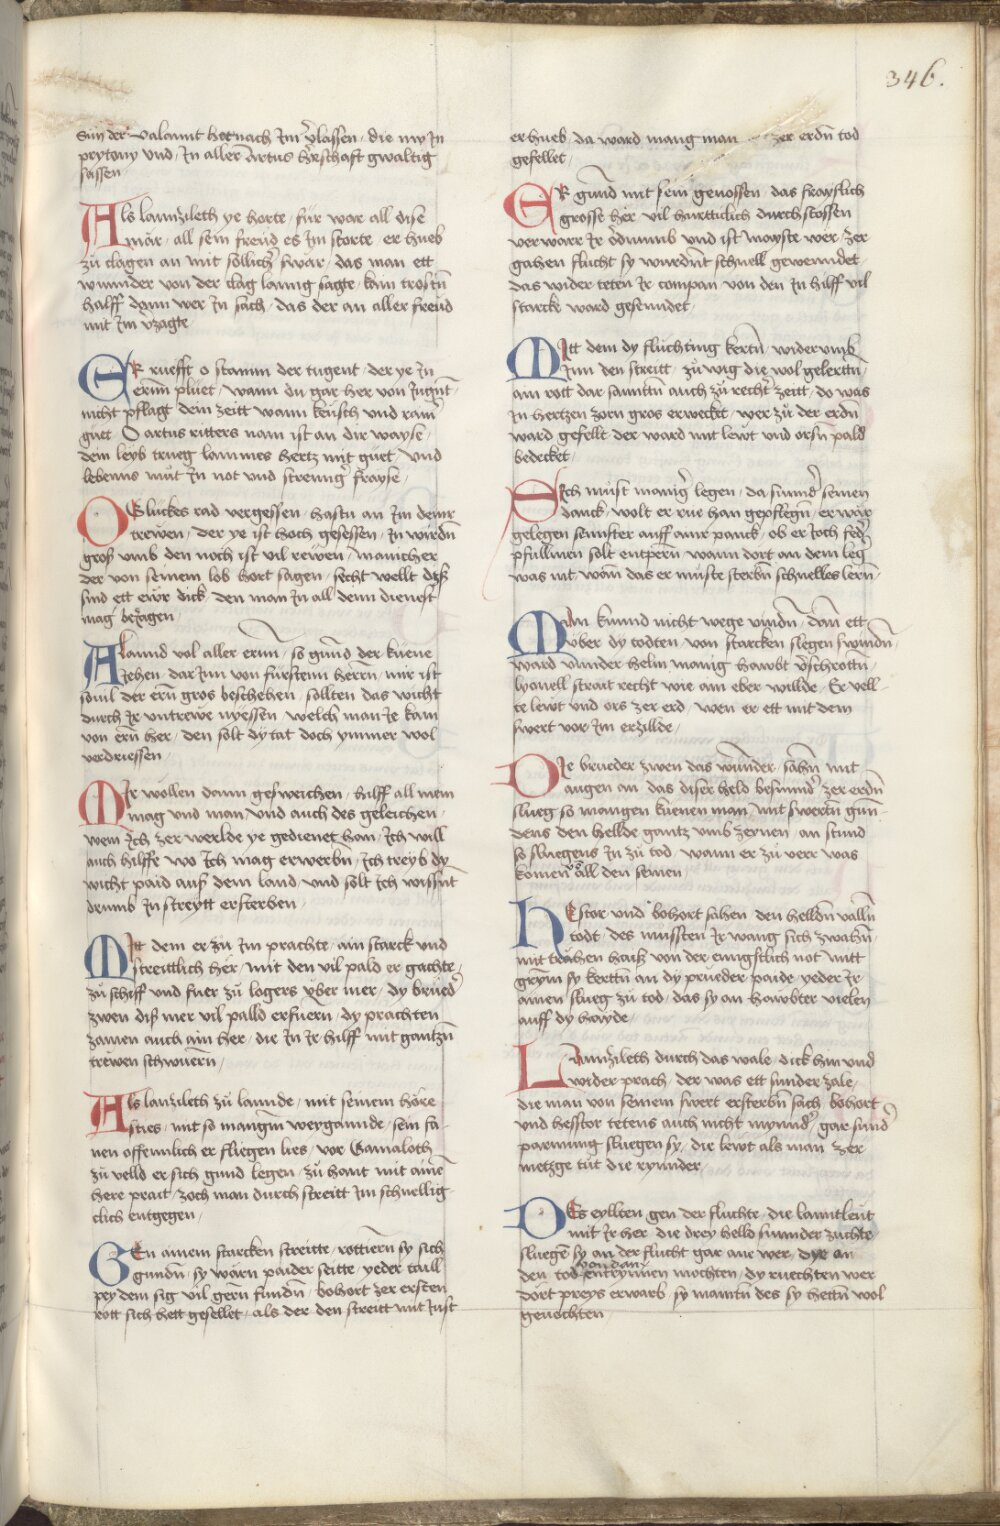 346.
Sün der valannt hernach Im v̾lassen / die nw In
peytony vnd / In aller Artus herschaft gwaltig
sassen /
Als lannzileth ye horte / für war all dise
mär / all sein freüd es Im storte / er hueb
zu clagen an mit sollich̾ swär / das man ett
wunnder von der clag lanng sagte / kain trostn̄
halff dann wer In sach / das der an aller freüd
mit Im vzagte
Er rüefft o stamm der tugent / der ye In
erenn plüet / wann du gar her von Iugnt̄
nicht pflagt dein zeitt wann keüsch vnd rain̄
güet O artus ritters nam ist an dir wayse /
dem leyb trueg lammes hertz mit güet / vnd
lebenns müt In not vnd strenng̾ frayse /
O Glückes rad vergessen / hastu an Im deiner
trewen / der ye ist hoch gesessen / In wirdn̄
gros vmb den noch ist vil rewen / manicher
der von seinem lob hort sagen / secht wellt dyß
sind ett ewr dick / den man In all denn dienest
mag beiagen /
Alannd vol aller ernn̄ / so gund der küene
Iehen / dar Inn von fürstenn herrn̄ / mir ist
souil der ern̄ gros beschehen / sollten das wicht
durch Ir vntrewe nyessen / welch man Ie kam
von ern̄ her / den solt dy tat doch ymmer wol
verdriessen /
Mir wöllen dann gesweichen / hilff all mein
mag vnd man / vnd auch des geleichen /
wem Ich zer werlde ye gedienet han / Ich will
auch hilffe wo Ich mag erwerbn̄ / Ich treyb dy
wicht paid auß dem land / vnd solt Ich wissnt̄
drumb In streytt ersterben /
Mitt dem er zu Im prachte / ain starck vnd
streittlich her / mit den vil pald er gachte /
zu schiff vnd fuer zu logers vber mer / dy brued̾
zwen diß mer vil palld erfuern̄ / dy prachten
zamen auch ain her / die In Ir hilff mit gantzn̄
trewen schwuern̄ /
Als lanzileth zu lannde / mit seinem höre
sties / mit so mangm̄ weygannde / sein fa-
nen offennlich er fliegen lies / vor Gamaloth
zu velld er sich gund legen / zu hant mit aine
here prait / zoch man durch streitt Im schnellig-
clich entgegen /
Gen ainem starcken streitte / rottiern̄ sy sich
gundn̄ / sy warn paider seitte / yeder taill
pey dem sig vil gern̄ fundn̄ / bohort zer ersten
rott sich hett gesellet / als der den streitt mit Iust
er hueb / da ward mang man zer erdn̄ tod
gefellet /
Er gund mit sein genossen / das frayslich
grosse her vil hurtticlich durch stossen
verwarr Ir ordnunng vnd ist mayste wer / zer
gahen flucht sy wurdnt̄ schnell gewenndet /
das wider teten Ir compan / von den In hilff vil
starcke ward gesenndet /
Mitt dem dy fluchting kertn̄ / widerumb
Inn den streitt / zu wig die wol gelertn̄ /
ain rott dar samntn̄ auch zu recht̾ zeitt / do was
In hertzen zorn gros erweckt / wer zu der erdn̄
ward gefellt der ward mit lewt vnd orsn̄ pald
bedecket /
Sich müst manig̾ legen / da sunnd̾ seinen
danck / wolt er rue han gepflegn̄ / er wär
gelegen sennfter auff ainr panck / ob er Ioch fed̾
pfulluen solt enpern̄ / wann dort an dem leg̾
was nit wan̄ das er müste sterbn̄ schnelles lern̄ /
Man kunnd nicht wege vindn̄ / dan̄ ett
vber dy todten / von starcken slegen swindn̄ /
ward vnnder helm manig hawbt v̾schrottn̄ /
lyonell strait recht wie ain eber willde / Er vell-
te lewt vnd ors zer erd / wen er ett mit dem
swert vor Im erzillde /
Die brueder zwen das wunnder / sahn̄ mit
augen an / das diser held besunnd̾ zer erdn̄
slueg so mangen küenen man / mit swertn̄ gun-
dens den hellde gantz vmb zeynen / an stund
so sluegens In zu tod / wann er zu verr was
komen all den seinen
Hestor vnd bohort sahen den helldn̄ valln̄
todt / des mussten Ir wang sich zwahn̄ /
mit trähen haiß von der enngstlich not mitt
grym̄ sy kertn̄ an dy prueder paide yeder Ir
ainen slueg zu tod / das sy an hawbter vielen
auff dy hayde /
Lannzileth durch das wale / dick hin vnd
wider prach / der was ett sunder zale /
die man von seinem swert ersterbn̄ sach bohort
vnd hesstor tetens auch nicht mynnd̾ gar sund̾
parmung sluegen sy / die lewt als man zer
metzge tüt die rynnder /
Des eyllten gen der fluchte / die lanntleut
mit Ir her / die drey helld sunnder zuchte
sluegn̄ sy an der flucht gar ane wer / dye an
den tod von dan entrynnen mochten / dy ruechten wer
dort preys erwarb / sy mantn̄ des sy hettn̄ wol
geuochten /